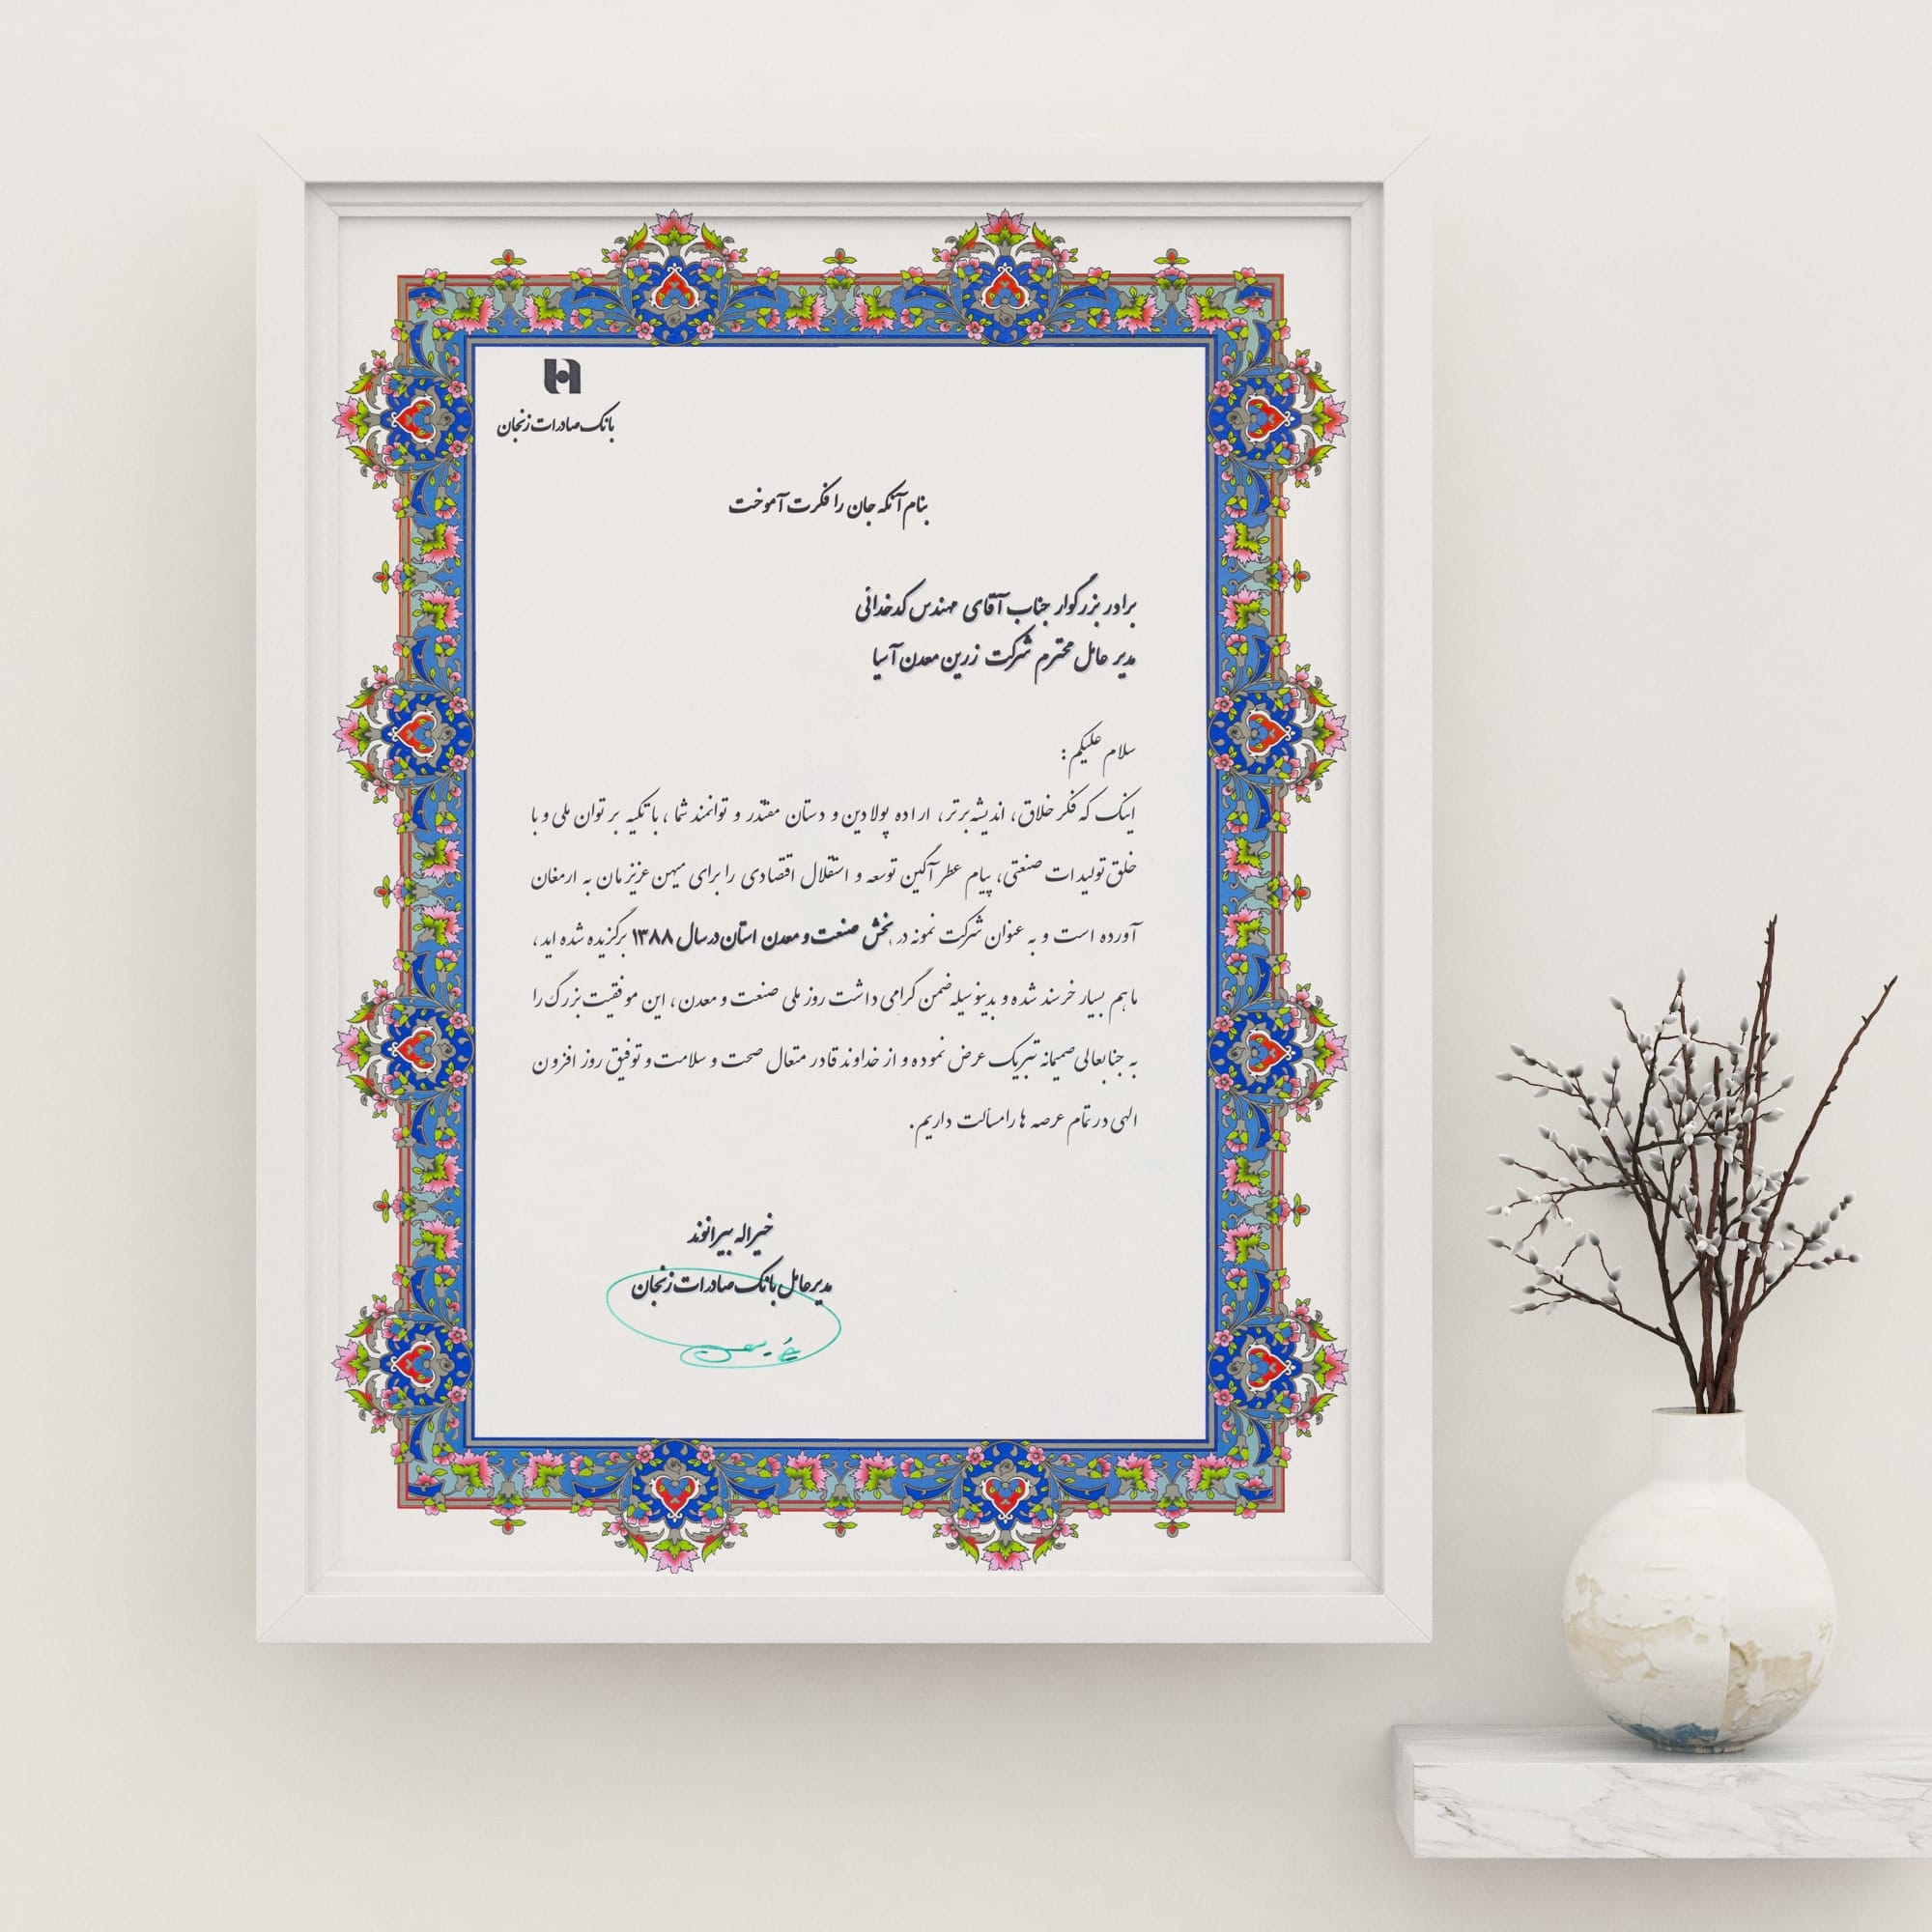 بانک صادرات زنجان
بنام آنکه جان را فکرت آموخت
برادر بزرگوار جناب آقای مهندس کدخدائی
مدیر عامل محترم شرکت زرین معدن آسیا
سلام علیکم :
اینک که فکر خلاق، اندیشه برتر، اراده پولادین و دستان مقتدر و توانمند شما ، با تکیه بر توان ملی و با
خلق تولیدات صنعتی، پیام عطر آگین توسعه و استقلال اقتصادی را برای میهن عزیزمان به ارمغان
آورده است و به عنوان شرکت نمونه در بخش صنعت و معدن استان در سال ۱۳۸۸ برگزیده شده اید ،
ما هم بسیار خرسند شده و بدینوسیله ضمن گرامی داشت روز ملی صنعت و معدن ، این موفقیت بزرگ را
به جنابعالی صمیمانه تبریک عرض نموده و از خداوند قادر متعال صحت و سلامت و توفیق روز افزون
الهی در تمام عرصه ها را مسألت داریم .
خیراله بیرانوند
مدیرعامل بانک صادرات زنجان